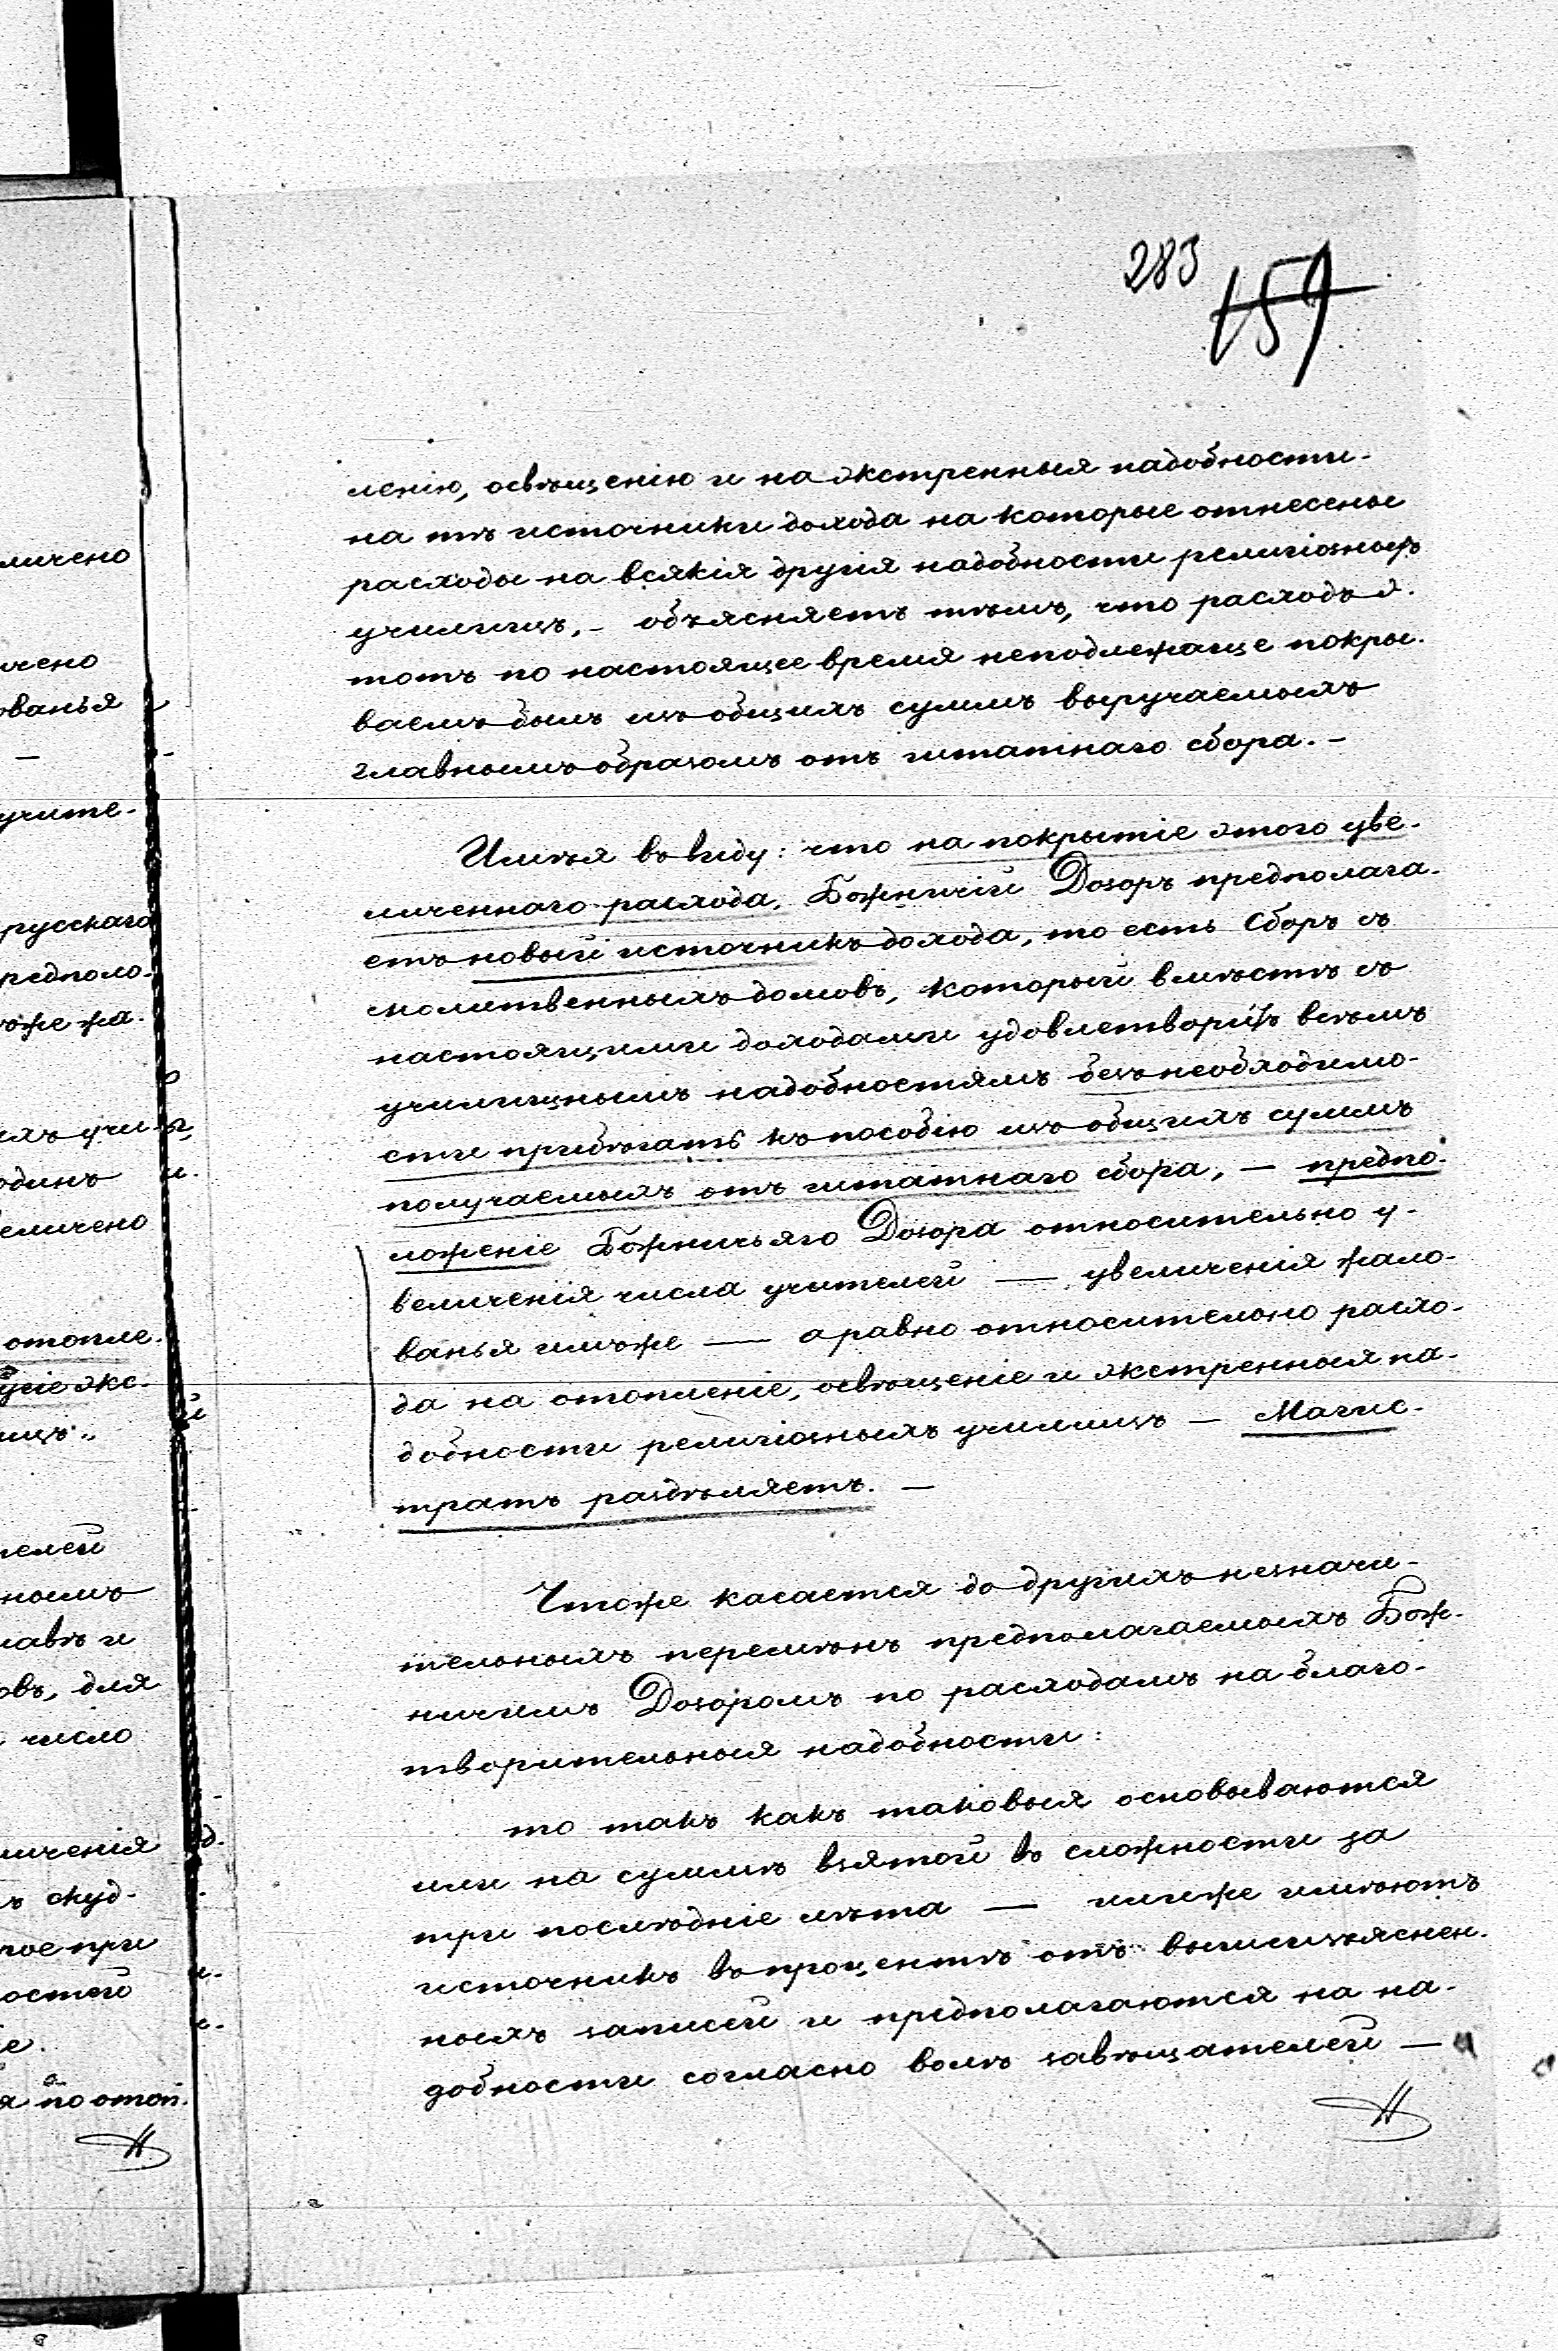 283
159
ленію, освѣщенію и на экстренныя надобности-
на тѣ источники дохода на которые отнесены
расходы на всякія другія надобности религіозныхъ
училищъ,- объясняетъ тѣмъ, что расходъ э-
тотъ по настоящее время неподлежаще покры-
ваемъ былъ изъ общихъ суммъ выручаемыхъ
главнымъ образомъ отъ штатнаго сбора.-
Имѣя въ виду: что на покрытіе этого уве-
личеннаго расхода, Божничій Дозоръ предполага-
етъ новый источникъ дохода, то есть сборъ съ
молитвенныхъ домовъ, который вмѣстѣ съ
настоящими доходами удовлетворитъ всѣмъ
училищнымъ надобностямъ безъ необходимо-
сти прибѣгать къ пособію изъ общихъ суммъ
получаемыхъ отъ штатнаго сбора, — предпо-
ложеніе Божничьяго Дозора относительно у-
величенія числа учителей — увеличенія жало-
ванья имъже — а равно относительно расхо-
да на отопленіе, освѣщеніе и экстренныя на-
добности религіозныхъ училищъ — Магис-
тратъ раздѣляетъ. —
Чтоже касается до другихъ незначи-
тельныхъ перемѣнъ предполагаемыхъ Бож-
ничимъ Дозоромъ по расходамъ на благо-
творительныя надобности:
то такъ какъ таковыя основываются
или на суммѣ взятой въ сложности за
три послѣдніе лѣта — илиже имѣютъ
источникъ въ процентѣ отъ вышеизъяснен-
ныхъ записей и предполагаются на на-
добности согласно волѣ завѣщателей —